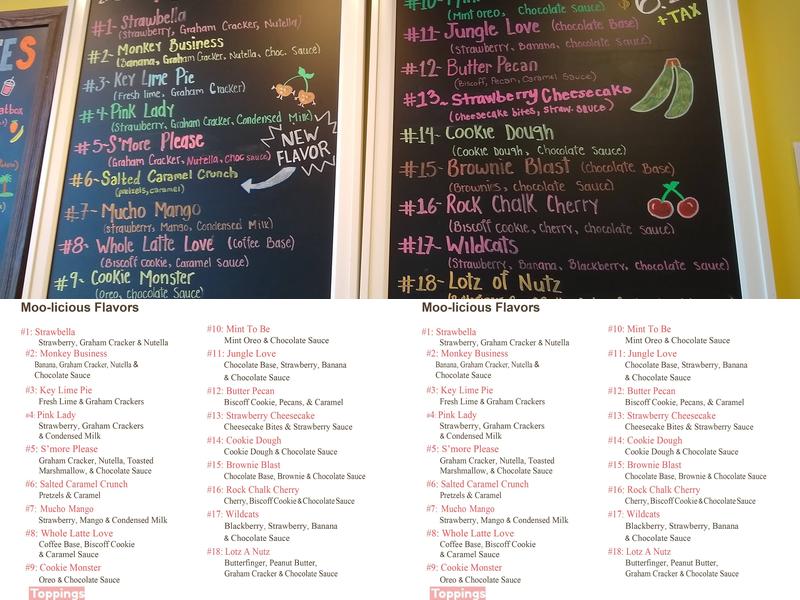 ES
atbox
#1- Strawbella
(Strawberry, Graham Cracker, Nutella)
#2- Monkey Business
(Banana, Graham Cracker, Nutella, Choc. Sauce)
#3- Key Lime Pie
(Fresh lime, Graham Cracker)
#4- Pink Lady
(Strawberry, Graham Cracker, Condensed Milk)
#5- S'More Please
(Graham Cracker, Nutella, choc sauce)
NEW
FLAVOR
#6- Salted Caramel Crunch
(pretzels, caramel)
#7- Mucho Mango
(strawberry, Mango, Condensed Milk)
#8- Whole Latte Love (Coffee Base)
(Biscoff cookie, Caramel Sauce)
#9- Cookie Monster
(Oreo, chocolate Sauce)
(Mint oreo, Chocolate Sauce)
+TAX
#11- Jungle Love (chocolate Base)
(strawberry, Banana, chocolate Sauce)
#12- Butter Pecan
(Biscoff, Pecan, Caramel Sauce)
#13~ Strawberry Cheesecake
(Cheesecake bites, straw. sauce)
#14- Cookie Dough
(Cookie dough, Chocolate Sauce)
#15- Brownie Blast (chocolate Base)
(Brownies, chocolate Sauce)
#16- Rock Chalk Cherry
(Biscoff cookie, cherry, chocolate sauce)
#17- Wildcats
(Strawberry, Banana, Blackberry, chocolate Sauce)
#18- Lotz of Nutz
Moo-licious Flavors
#1: Strawbella
Strawberry, Graham Cracker & Nutella
#2: Monkey Business
Banana, Graham Cracker, Nutella &
Chocolate Sauce
#3: Key Lime Pie
Fresh Lime & Graham Crackers
#4: Pink Lady
Strawberry, Graham Crackers
& Condensed Milk
#5: S'more Please
Graham Cracker, Nutella, Toasted
Marshmallow, & Chocolate Sauce
#6: Salted Caramel Crunch
Pretzels & Caramel
#7: Mucho Mango
Strawberry, Mango & Condensed Milk
#8: Whole Latte Love
Coffee Base, Biscoff Cookie
& Caramel Sauce
#9: Cookie Monster
Oreo & Chocolate Sauce
Toppings
#10: Mint To Be
Mint Oreo & Chocolate Sauce
#11: Jungle Love
Chocolate Base, Strawberry, Banana
& Chocolate Sauce
#12: Butter Pecan
Biscoff Cookie, Pecans, & Caramel
#13: Strawberry Cheesecake
Cheesecake Bites & Strawberry Sauce
#14: Cookie Dough
Cookie Dough & Chocolate Sauce
#15: Brownie Blast
Chocolate Base, Brownie & Chocolate Sauce
#16: Rock Chalk Cherry
Cherry, Biscoff Cookie & Chocolate Sauce
#17: Wildcats
Blackberry, Strawberry, Banana
& Chocolate Sauce
#18: Lotz A Nutz
Butterfinger, Peanut Butter,
Graham Cracker & Chocolate Sauce
Moo-licious Flavors
#1: Strawbella
Strawberry, Graham Cracker & Nutella
#2: Monkey Business
Banana, Graham Cracker, Nutella &
Chocolate Sauce
#3: Key Lime Pie
Fresh Lime & Graham Crackers
#4: Pink Lady
Strawberry, Graham Crackers
& Condensed Milk
#5: S'more Please
Graham Cracker, Nutella, Toasted
Marshmallow, & Chocolate Sauce
#6: Salted Caramel Crunch
Pretzels & Caramel
#7: Mucho Mango
Strawberry, Mango & Condensed Milk
#8: Whole Latte Love
Coffee Base, Biscoff Cookie
& Caramel Sauce
#9: Cookie Monster
Oreo & Chocolate Sauce
Toppings
#10: Mint To Be
Mint Oreo & Chocolate Sauce
#11: Jungle Love
Chocolate Base, Strawberry, Banana
& Chocolate Sauce
#12: Butter Pecan
Biscoff Cookie, Pecans, & Caramel
#13: Strawberry Cheesecake
Cheesecake Bites & Strawberry Sauce
#14: Cookie Dough
Cookie Dough & Chocolate Sauce
#15: Brownie Blast
Chocolate Base, Brownie & Chocolate Sauce
#16: Rock Chalk Cherry
Cherry, Biscoff Cookie & Chocolate Sauce
#17: Wildcats
Blackberry, Strawberry, Banana
& Chocolate Sauce
#18: Lotz A Nutz
Butterfinger, Peanut Butter,
Graham Cracker & Chocolate Sauce